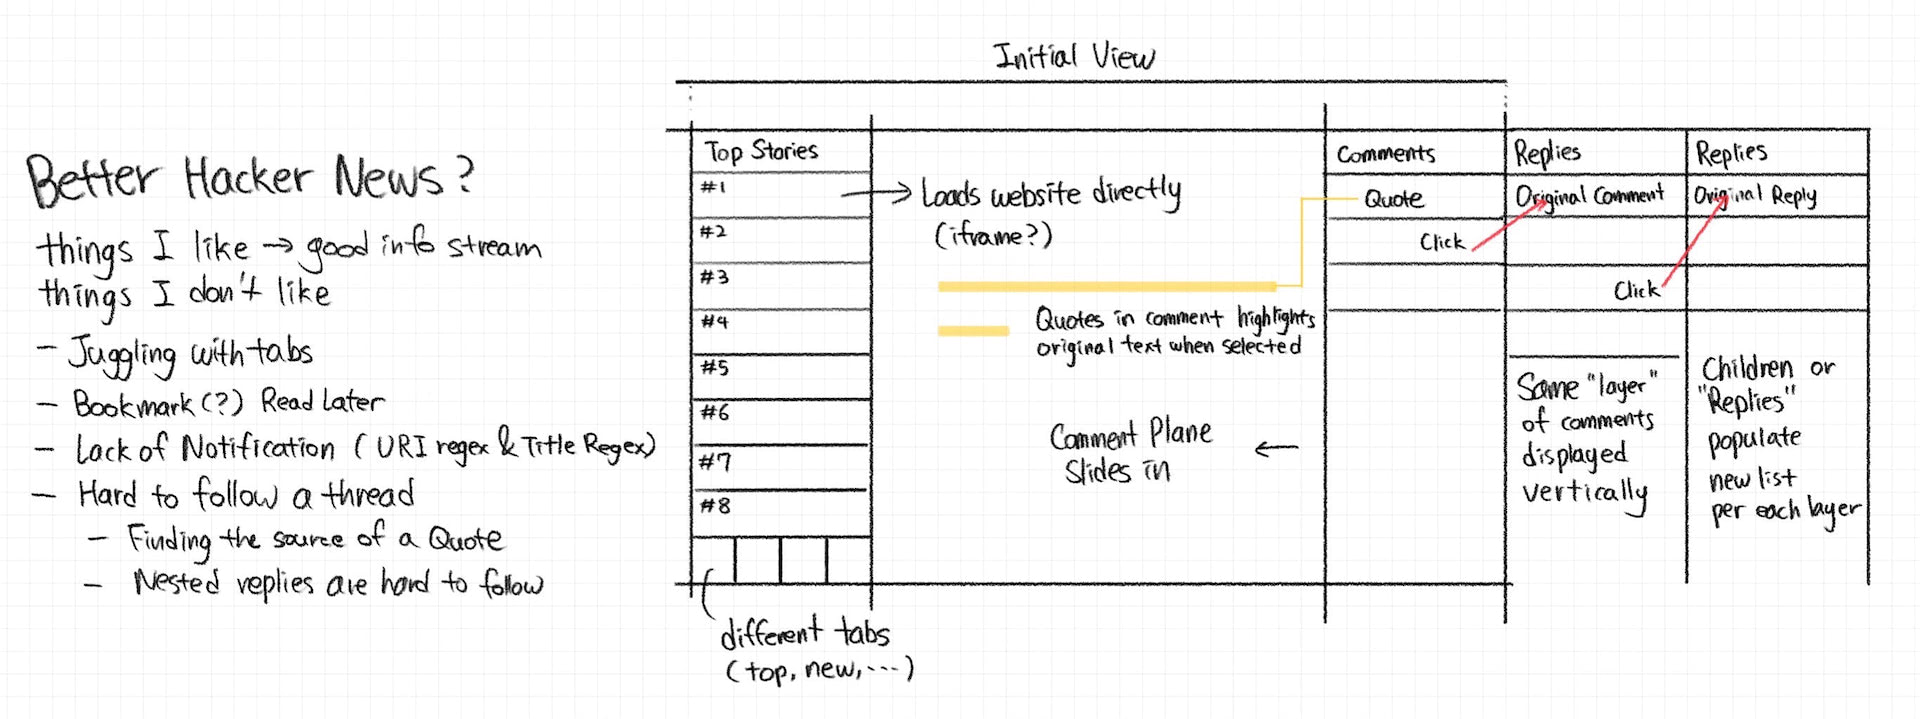 Initial View
Better Hacker News?
things I like → good info stream
things I don't like
- Juggling with tabs
- Bookmark (?) Read Later
- Lack of Notification (URI regex & Title Regex)
- Hard to follow a thread
- Finding the source of a Quote
- Nested replies are hard to follow
Top Stories
#1
#2
#3
#4
#5
#6
#7
#8
different tabs
(top, new, ....)
→ Loads website directly
(iframe?)
Quotes in comment highlights
original text when selected
Comment Plane ←
Slides in
Comments
Quote
Click
Replies
Original Comment
Click
Same "layer"
of comments
displayed
vertically
Replies
Original Reply
Children or
"Replies"
populate
new list
per each layer